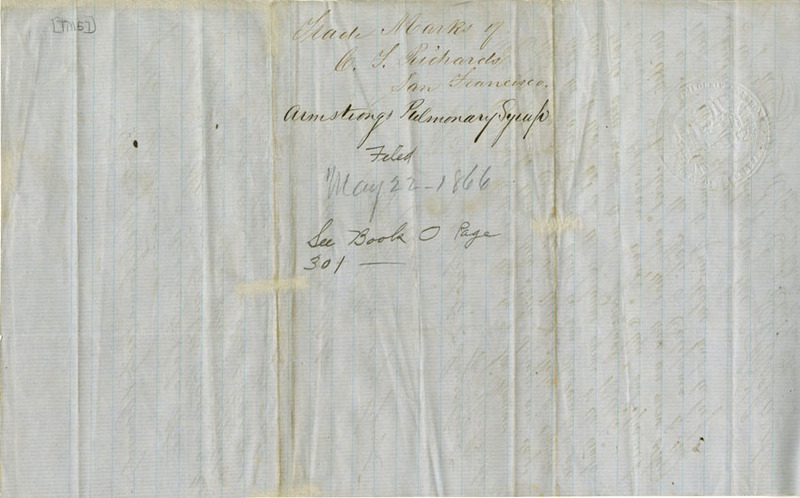 [TM57]
Trade Marks of
C. F. Richards
San Francisco.
Armstrongs Pulmonary Syrup
Filed
May 22-1866
See Book O Page
301